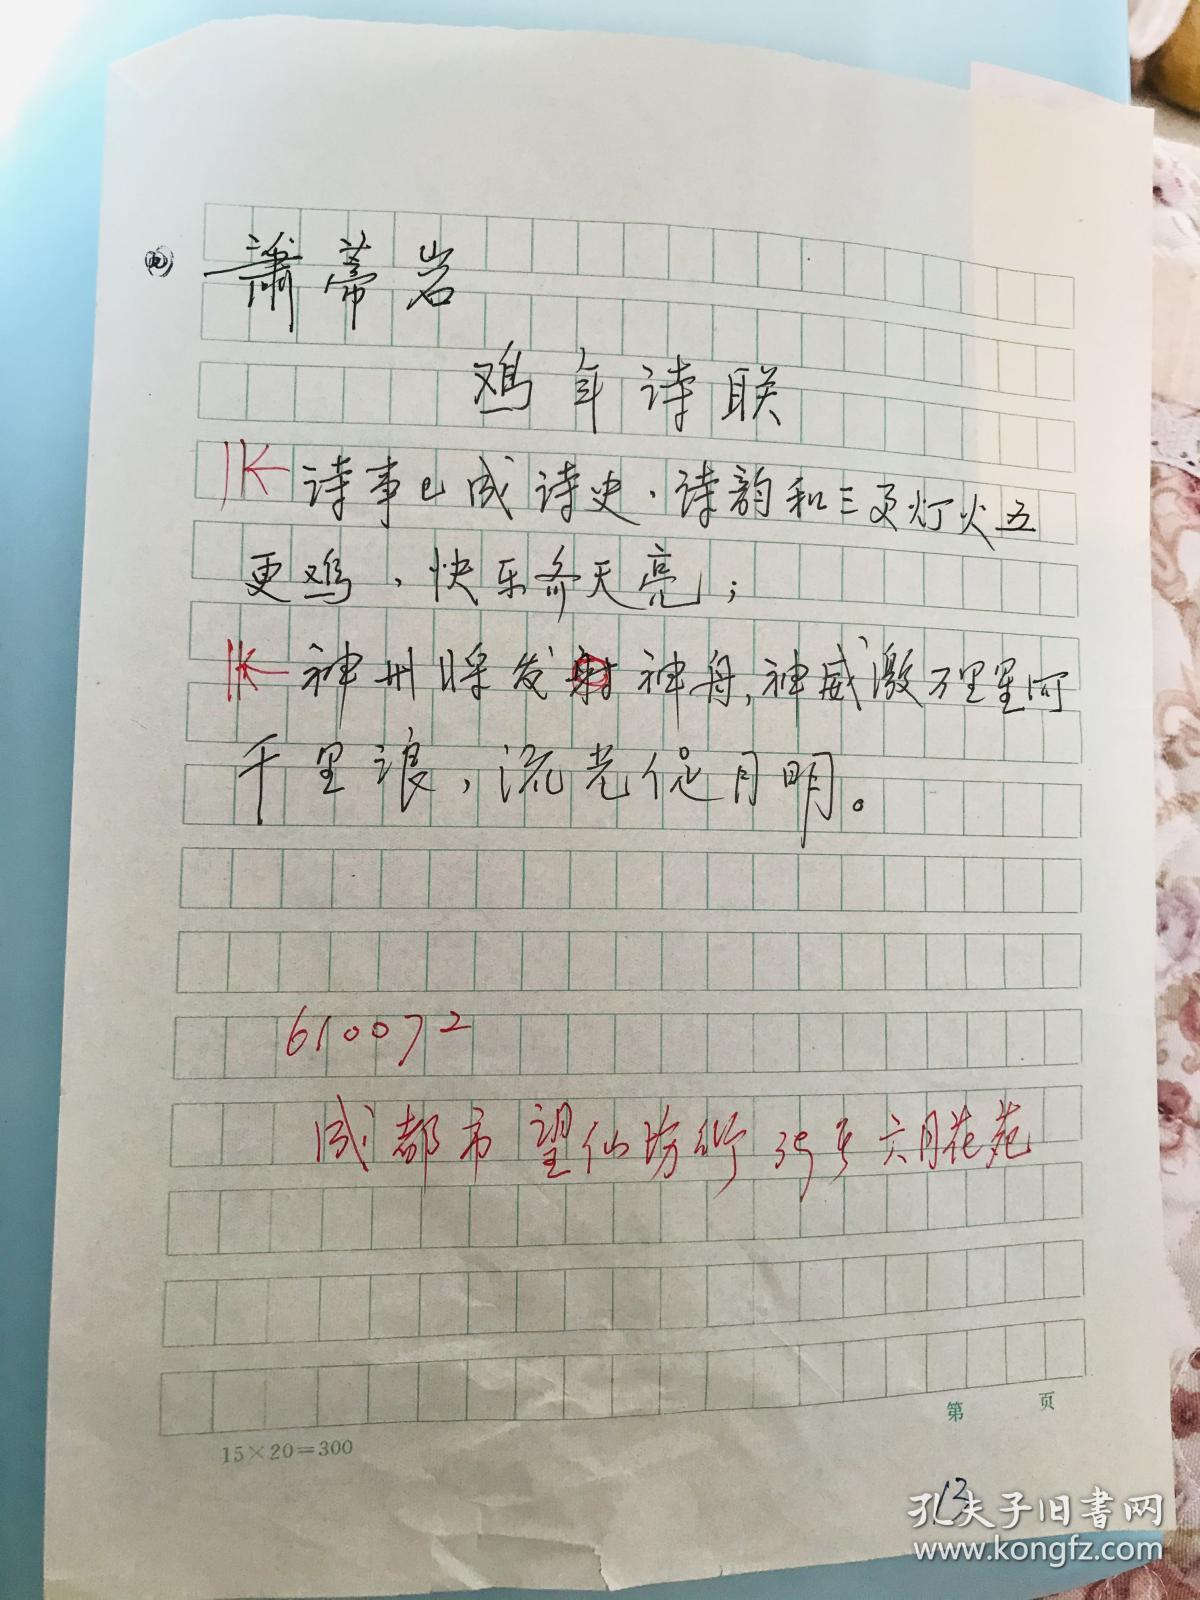 萧蒂岩
鸡年诗联
诗事已成诗史，诗韵和三更灯火五
更鸡，快乐齐天亮；
神州将发射神舟，神威激万里星河
千里浪，流光促月明。
610072
成都市望仙坊街35号六月花苑
第 页
15×20=300
13
孔夫子旧书网
www.kongfz.com